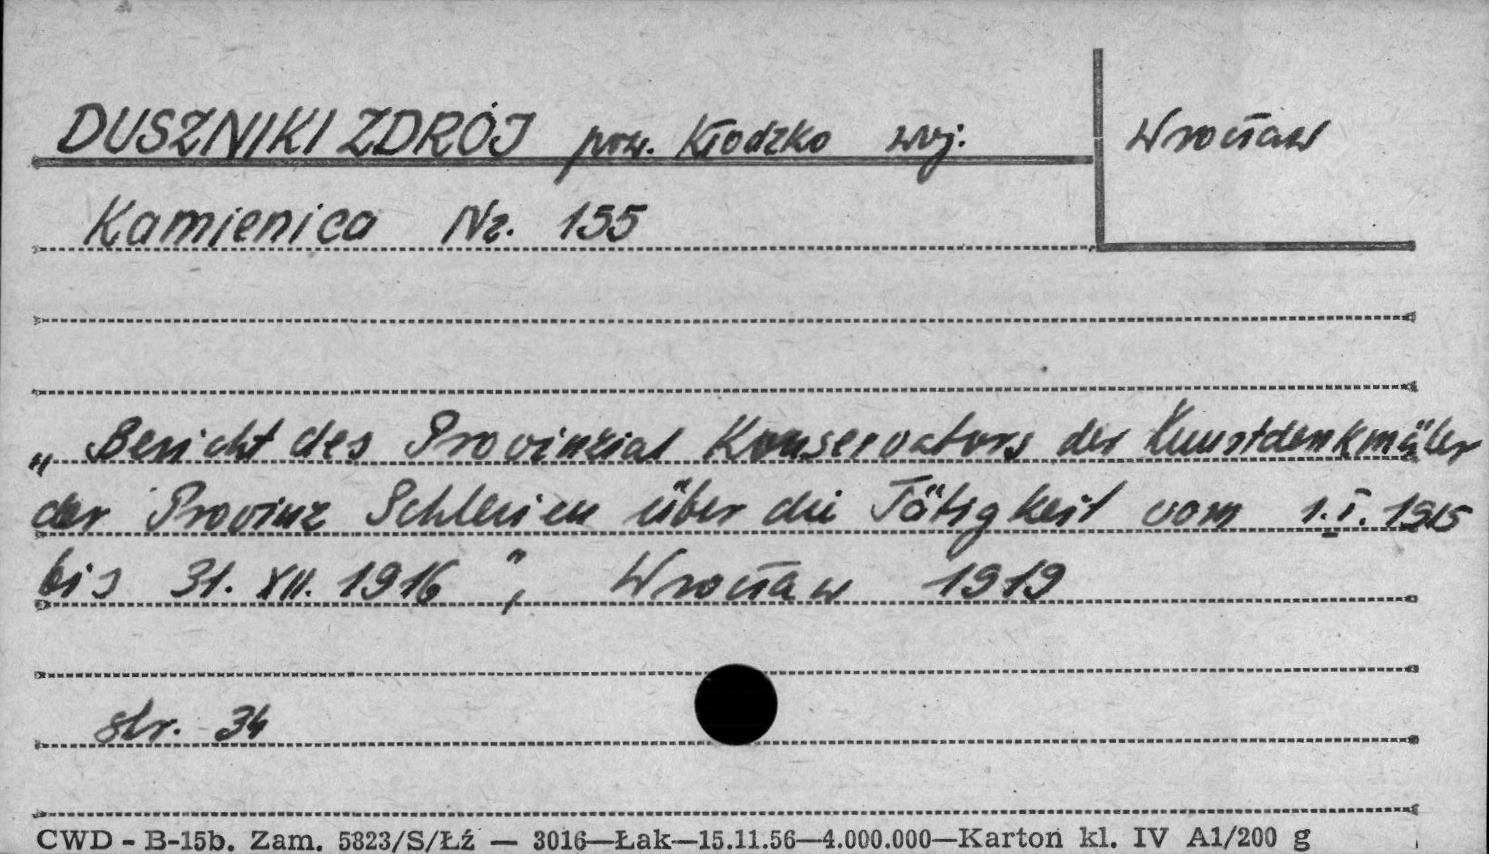 DUSZNIKI ZDRÓJ pow. Kłodzko woj. Wrocław
Kamienica Nr. 155
„Bericht des Provinzial Konservators der Kunstdenkmäler
der Provinz Schlesien über die Tätigkeit vom 1.I.1915
bis 31.XII.1916", Wrocław 1919
str. 34
CWD - B-15b. Zam. 5823/S/Łź — 3016—Łak—15.11.56—4.000.000—Karton kl. IV A1/200 g